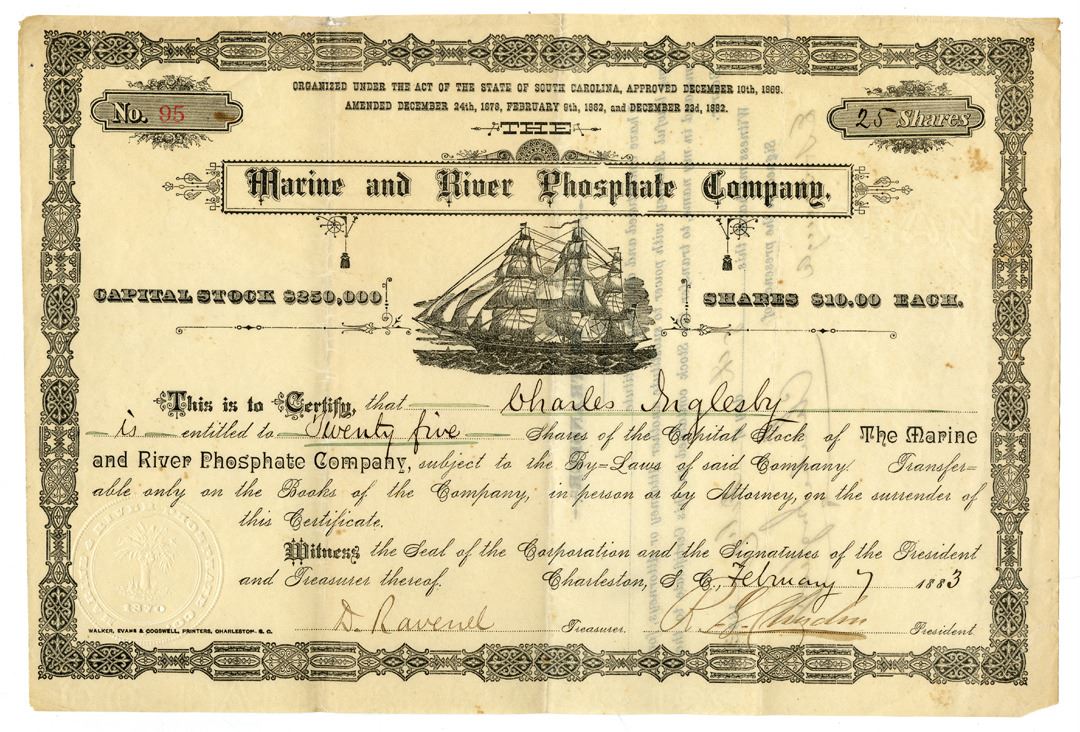 ORGANIZED UNDER THE ACT OF THE STATE OF SOUTH CAROLINA, APPROVED DECEMBER 10th, 1869.
AMENDED DECEMBER 24th, 1878, FEBRUARY 9th, 1882, and DECEMBER 23d, 1882.
No. 95
25 Shares
THE
Marine and River Phosphate Company.
CAPITAL STOCK $250,000
SHARES $10.00 EACH.
This is to Certify, that Charles Inglesby
is entitled to Twenty five Shares of the Capital Stock of The Marine
and River Phosphate Company, subject to the By-Laws of said Company. Transfer=
able only on the Books of the Company, in person or by Attorney, on the surrender of
this Certificate.
Witness the Seal of the Corporation and the Signatures of the President
and Treasurer thereof. Charleston, S. C., February 7 1883
D. Ravenel Treasurer. President
1870
WALKER, EVANS & COGSWELL, PRINTERS, CHARLESTON, S. C.